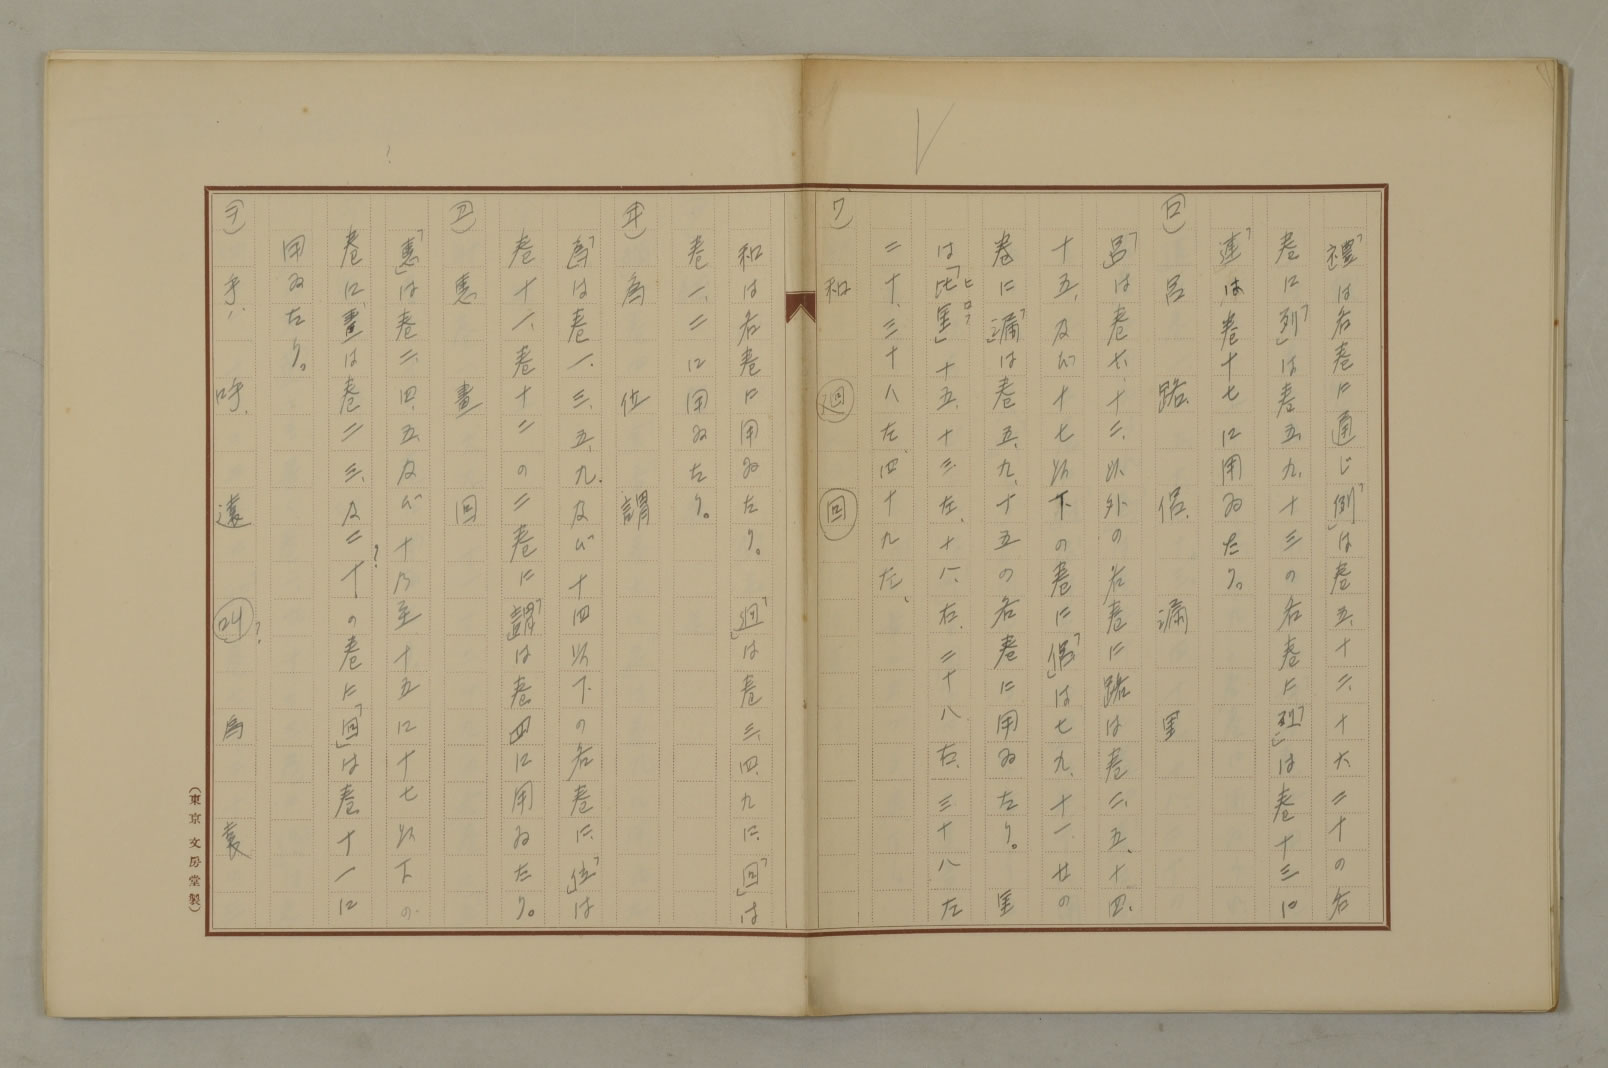 「禮」は各巻に通じ「例」は巻五、十二、十六、二十の各
巻に「列」は巻五、九、十三の各巻に「烈」は巻十三に
「連」は巻十七に用ゐたり。
ロ) 呂 路 侶 漏 里
「呂」は巻六、十二、以外の各巻に路は巻二、五、十四、
十五、及び十七以下の巻に「侶」は七九、十一、廿の
巻に「漏」は巻五、九、十五の各巻に用ゐたり。里
は「比里」十五、十三左、十八、右、二十八右、三十八左
ヒロフ
二十、三十八左、四十九左、
ワ) 和 廻 回
和は各巻に用ゐたり。「廻」は巻三、四、九に、「回」は
巻一、二に用ゐたり。
ヰ) 為 位 謂
「為」は巻一、三、五、九、及び十四以下の各巻に、「位」は
巻十一、巻十二の二巻に「謂」は巻四に用ゐたり。
ヱ) 恵 畫 回
「恵」は巻二、四、五、及び十乃至十五に十七以下の
巻に、畫は巻二三、及二十?の巻に「回」は巻十一に
用ゐたり。
ヲ) 乎、 呼、 遠 叫? 烏 袁
(東京 文房堂製)